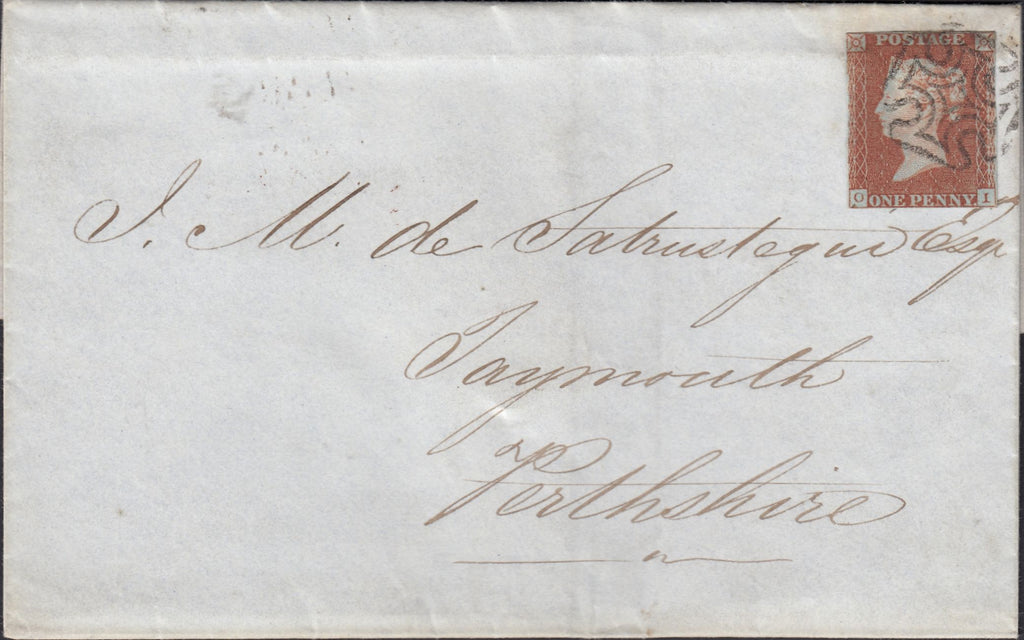 POSTAGE
O ONE PENNY I
J. M. de Satrustegui Esqr
Taymouth
Perthshire